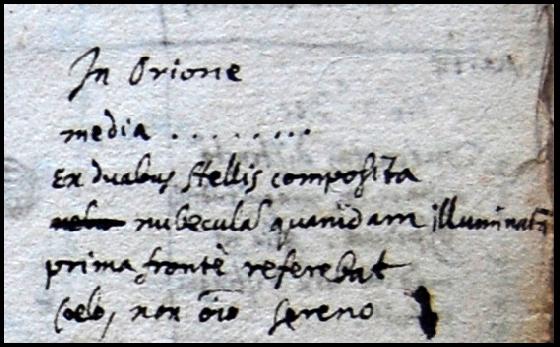 In Orione
media . . . . . . . .
Ex duabus stellis composita
nubeculā quandam illuminatā
prima fronte referebat
Coelo, non oīo sereno